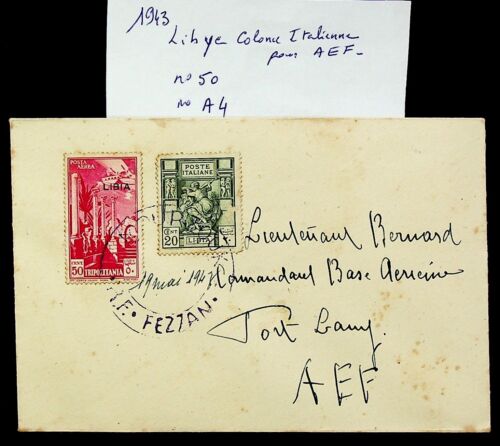 1943
Libye Colonie Italienne
pour AEF-
no 50
no A4
POSTA
AEREA
LIBIA
CENT
50
TRIPOLITANIA
POSTE
ITALIANE
CENT
20
LIBIA
19 mai 1943
R.F. • FEZZAN •
Lieutenant Bernard
Commandant Base Aerienne
Fort Lamy
AEF